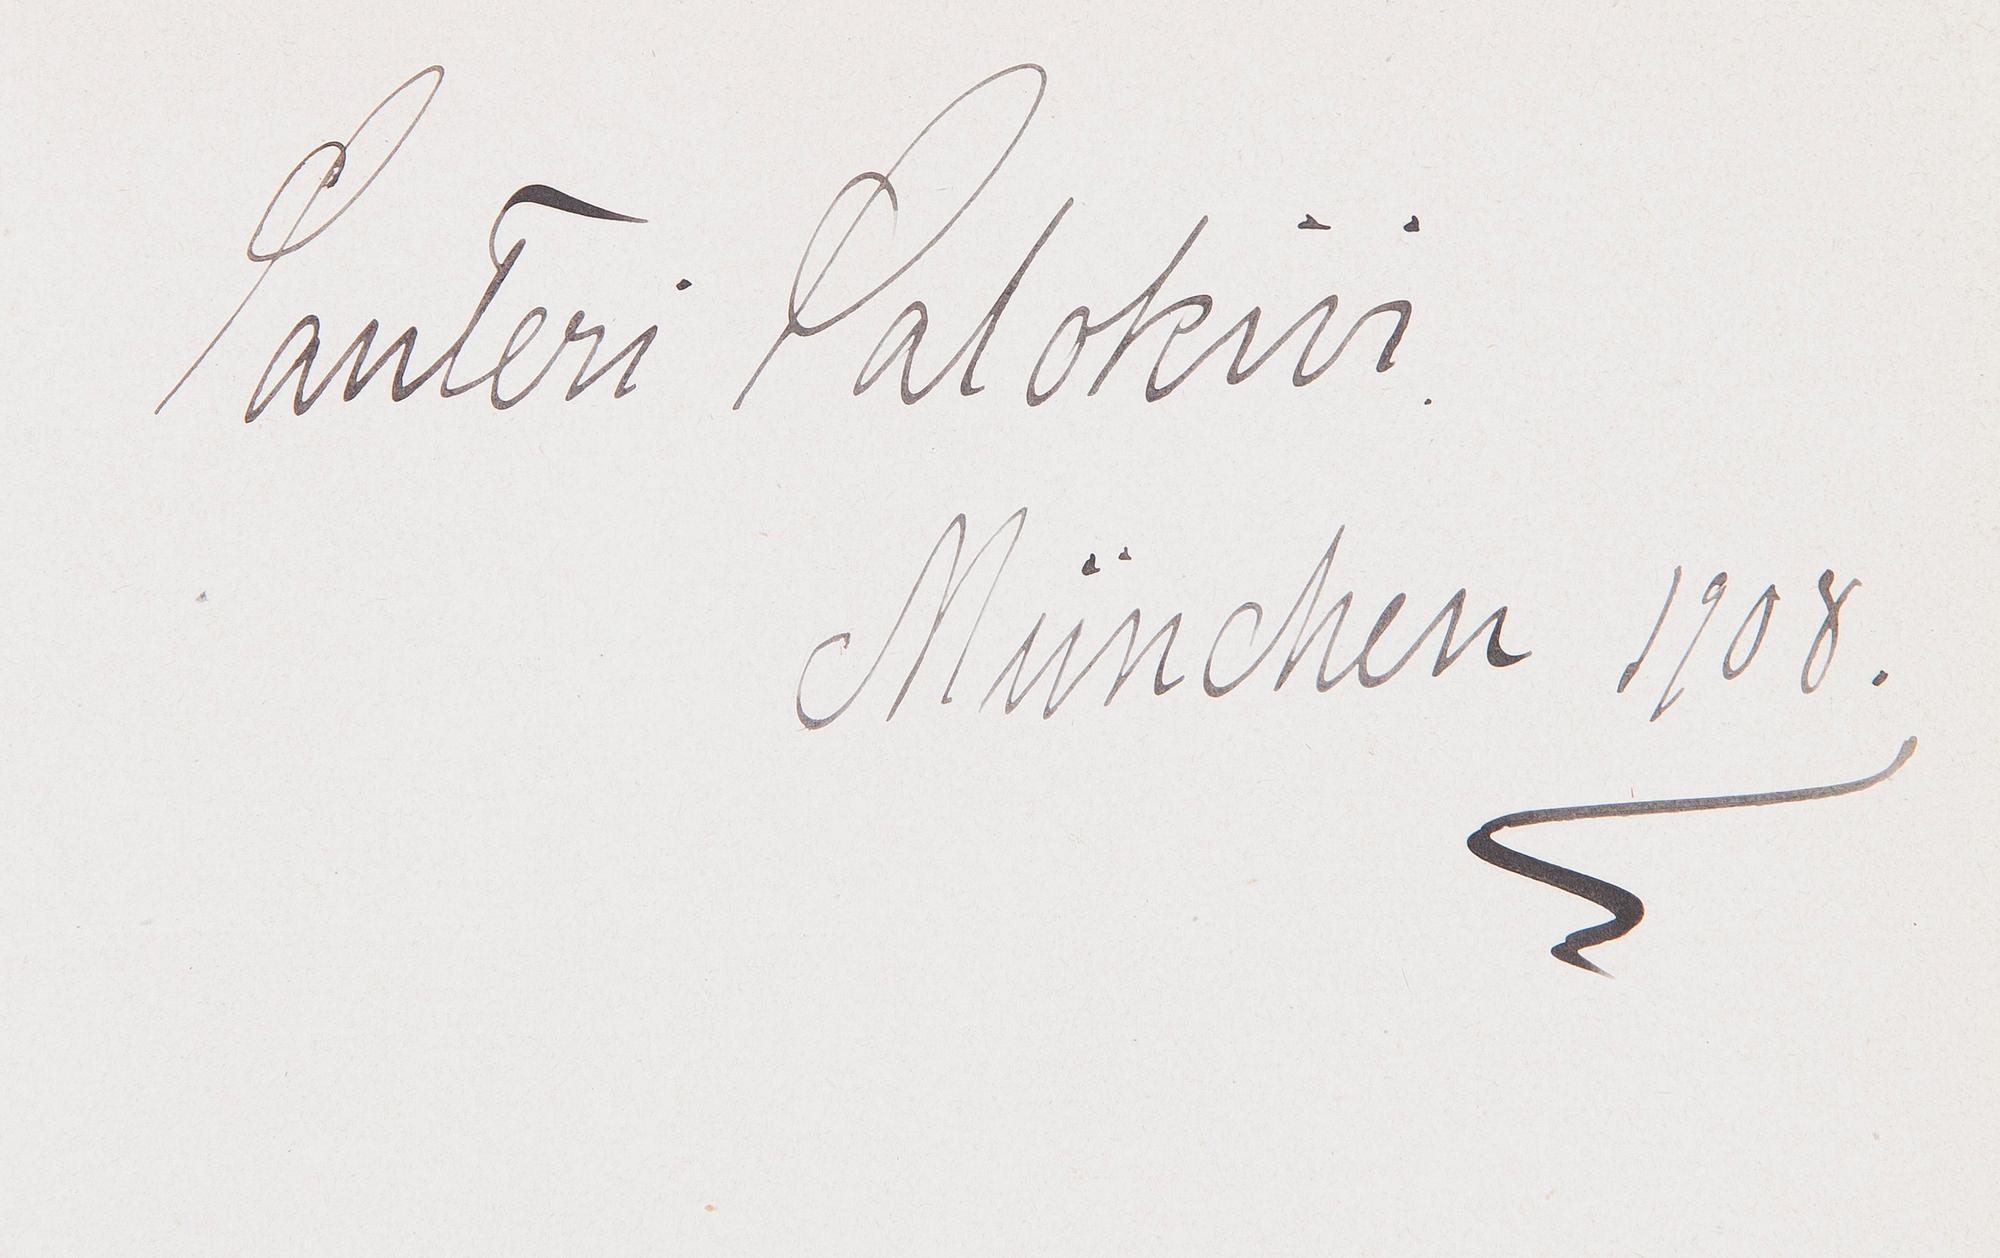 Santeri Salokivi.
München 1908.